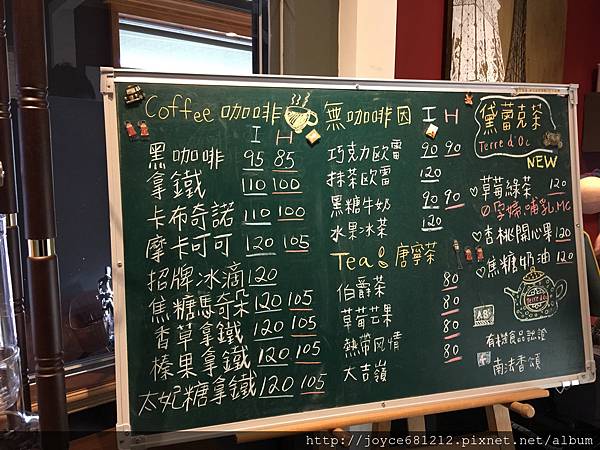 Coffee 咖啡
I H
黑咖啡 95 85
拿鐵 110 100
卡布奇諾 110 100
摩卡可可 120 105
招牌冰滴 120
焦糖瑪奇朵 120 105
香草拿鐵 120 105
榛果拿鐵 120 105
太妃糖拿鐵 120 105
無咖啡因 I H
巧克力歐蕾 90 90
抹茶歐蕾 120
黑糖牛奶 90 90
水果冰茶 120
Tea 唐寧茶
伯爵茶 80
草莓芒果 80
熱帶风情 80
大吉嶺 80
黛蕾克茶
Terre d'Oc
NEW
草莓綠茶 120
孕婦哺乳
杏桃開心果 120
焦糖奶油 120
Terre d'Oc
AB
有機食品認證
南法香頌
http://joyce681212.pixnet.net/album